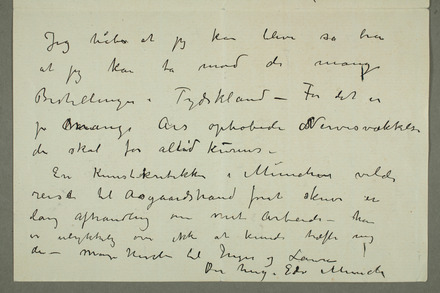 Jeg håber at jeg kan blive så bra
at jeg kan ta mod de mange
Bestillinger i Tydskland – For det er
jo mange Års ophobede Nervesvækkelse
der skal for altid kureres –
En Kunstkritikker i München vilde
reise til Aasgaardstrand for at skrive en
lang afhandling om mit Arbeide – han
er ulykkelig over ikke at kunde træffe mig
der – mange til Inger og Laura
Din heng. Edv Munch